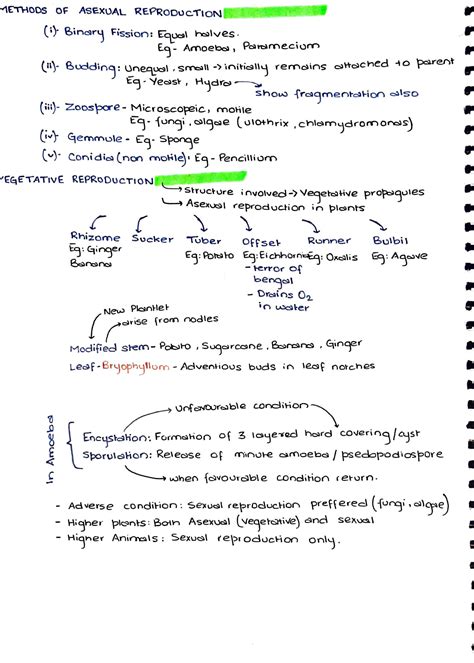 METHODS OF ASEXUAL REPRODUCTION
(i)- Binary Fission: Equal halves.
Eg- Amoeba, Paramecium
(ii)- Budding: Unequal, small → initially remains attached to parent
Eg- Yeast, Hydra
show fragmentation also
(iii)- Zoospore- Microscopeic, motile
Eg- fungi, algae (Ulothrix, chlamydromonas)
(iv)- Gemmule- Eg- Sponge
(v)- Conidia (non motile): Eg- Pencillium
VEGETATIVE REPRODUCTION
→ Structure involved → Vegetative propagules
→ Asexual reproduction in plants
Rhizome Sucker Tuber Offset Runner Bulbil
Eg: Ginger Eg: Potato Eg: Eichhornia Eg: Oxalis Eg: Agave
Banana
- terror of
bengal
- Drains O2
in water
New Plantlet
arise from nodles
Modified stem- Potato, Sugarcane, Banana, Ginger
Leaf- Bryophyllum- Adventious buds in leaf notches
Unfavourable condition
In Amoeba
Encystation: Formation of 3 layered hard covering/cyst
Sporulation: Release of minute amoeba / psedopodiospore
when favourable condition return.
- Adverse condition: Sexual reproduction preffered (fungi, algae)
- Higher plants: Both Asexual (vegetative) and sexual
- Higher Animals: Sexual reproduction only.